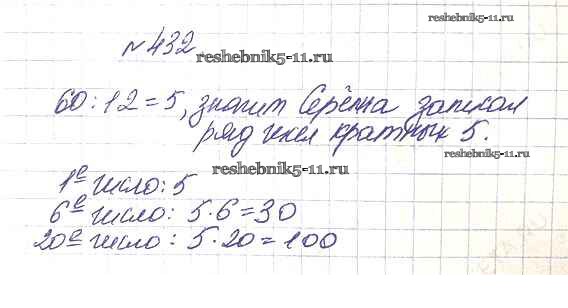 №432
reshebnik5-11.ru
reshebnik5-11.ru
60:12=5, значит Серёжа записал
ряд чисел кратных 5.
reshebnik5-11.ru
reshebnik5-11.ru
1е число: 5
6е число: 5·6=30
20е число: 5·20=100